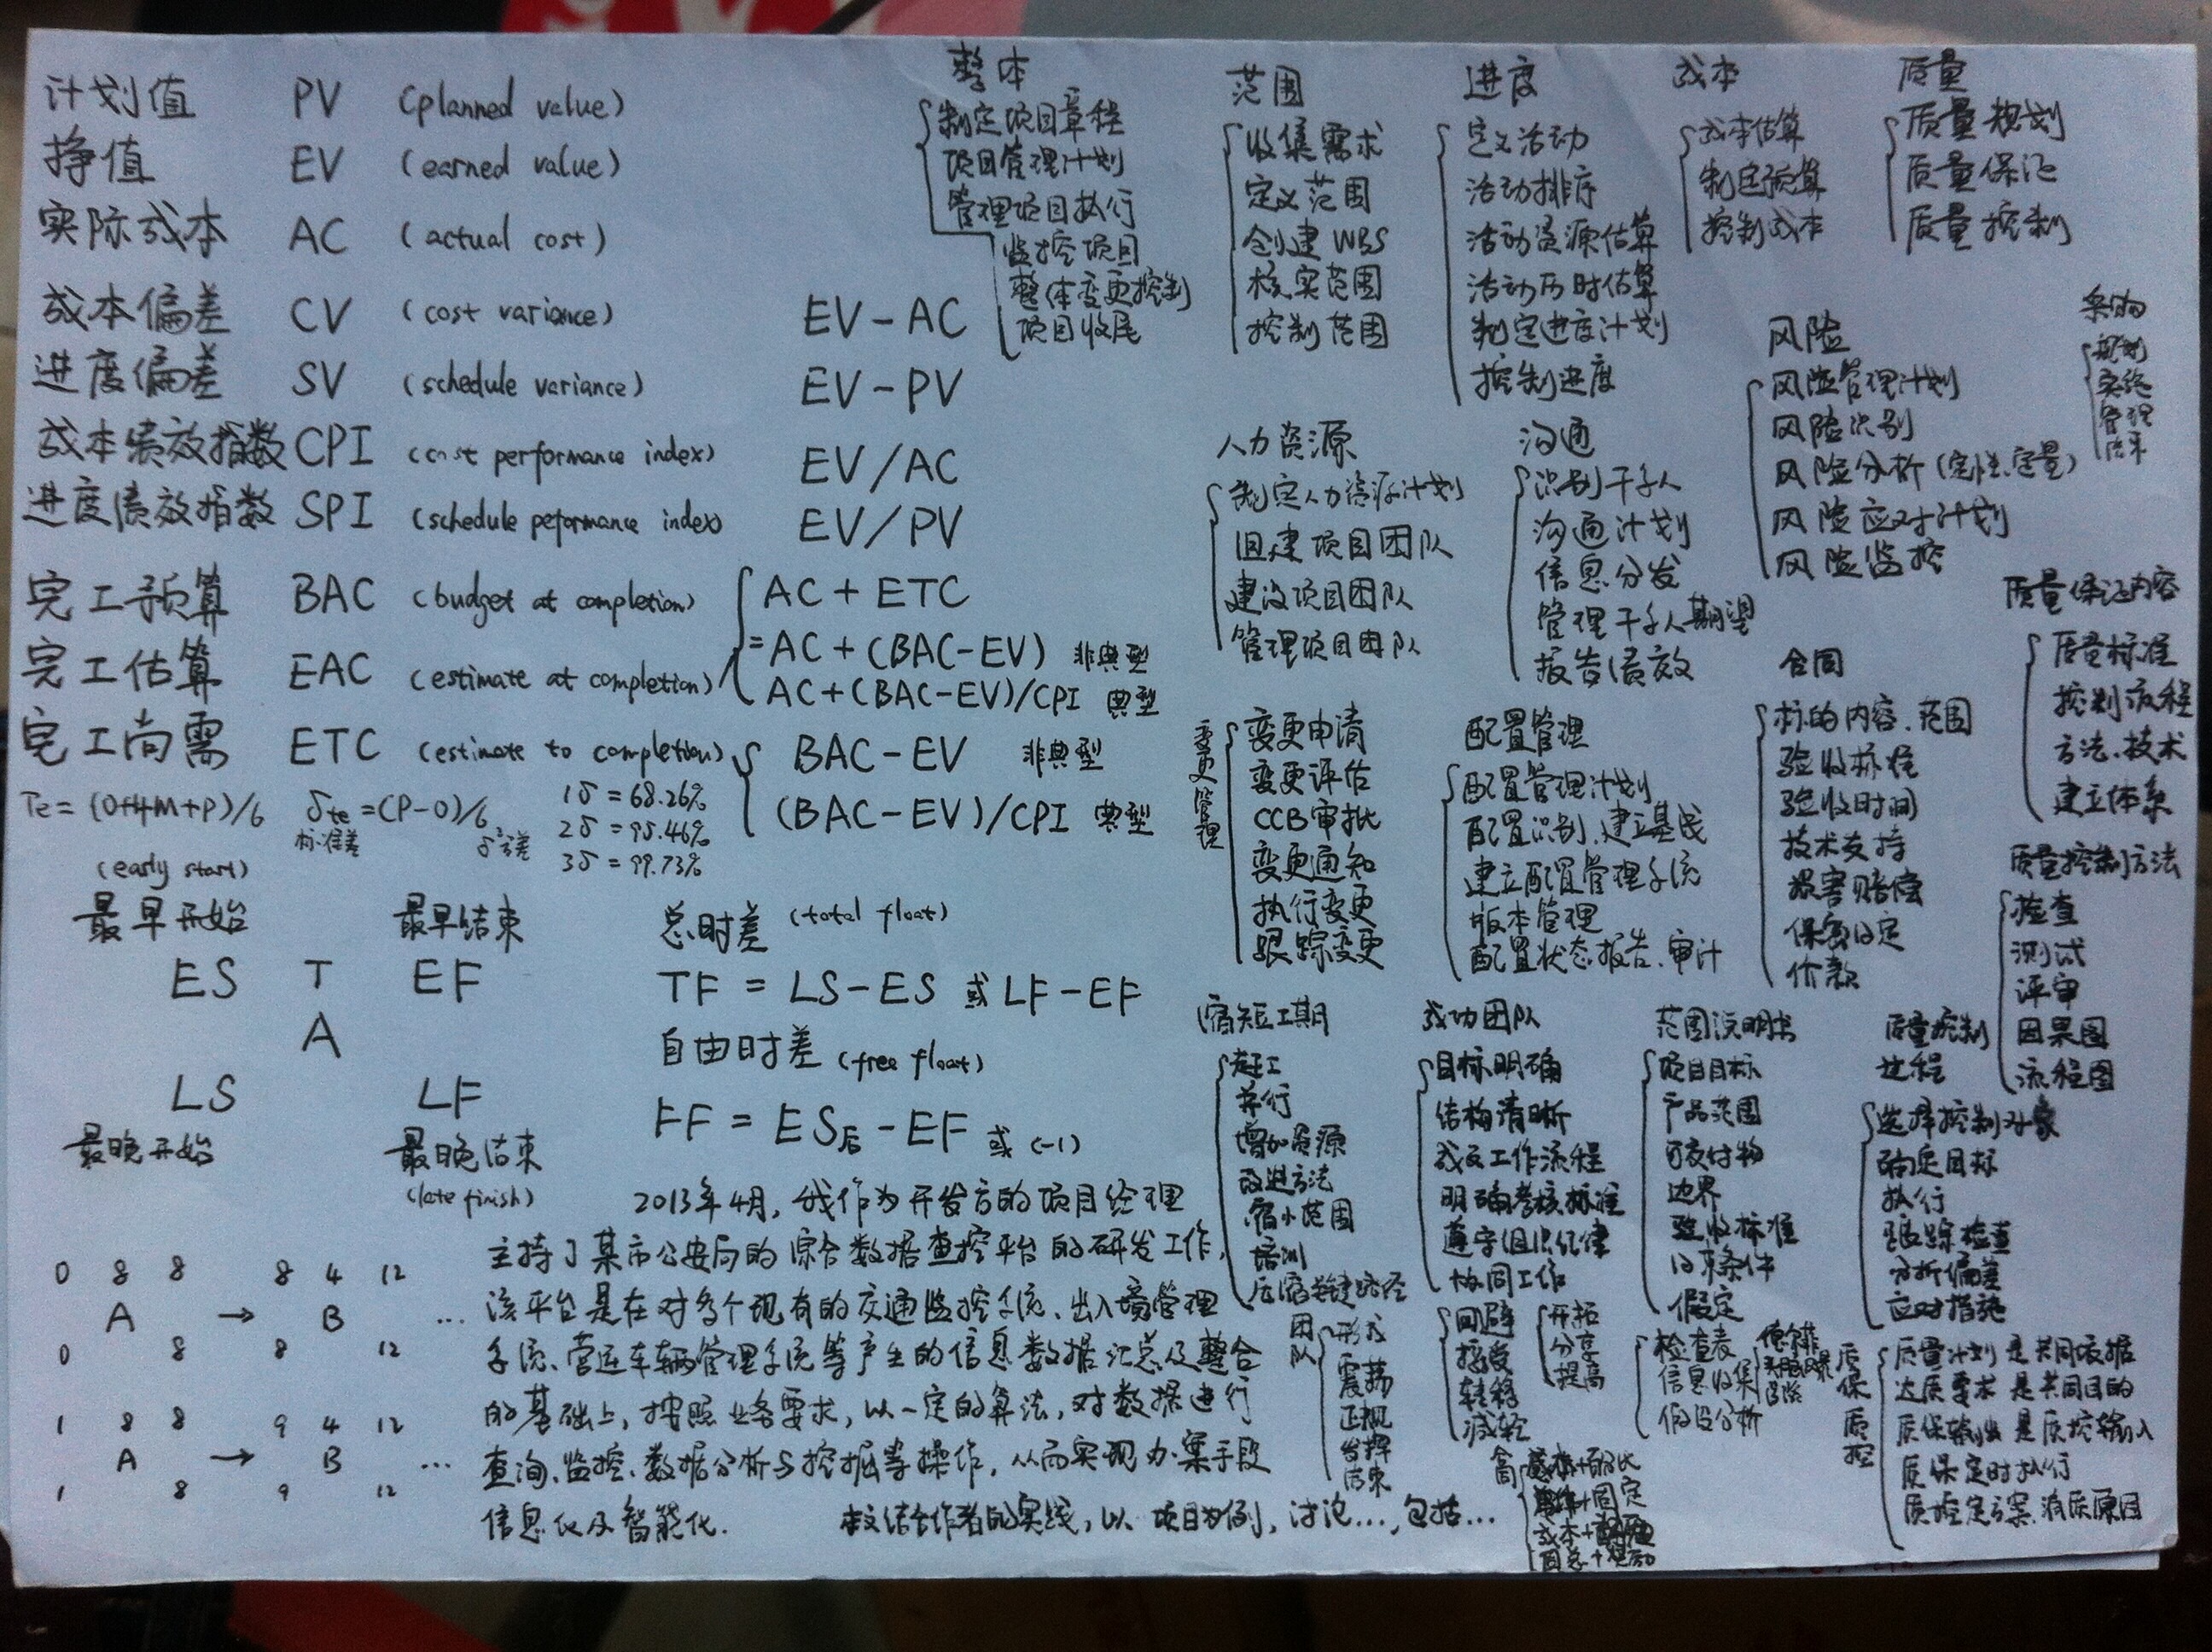 计划值 PV (planned value)
挣值 EV (earned value)
实际成本 AC (actual cost)
成本偏差 CV (cost variance) EV-AC
进度偏差 SV (schedule variance) EV-PV
成本绩效指数 CPI (cost performance index) EV/AC
进度绩效指数 SPI (schedule peformance index) EV/PV
完工预算 BAC (budget at completion)
完工估算 EAC (estimate at completion)
AC+ETC
=AC+(BAC-EV) 非典型
AC+(BAC-EV)/CPI 典型
完工尚需 ETC (estimate to completion)
BAC-EV 非典型
(BAC-EV)/CPI 典型
Te=(O+4M+P)/6 δte=(P-O)/6
标准差 δ²方差
1δ=68.26%
2δ=95.46%
3δ=99.73%
(early start)
最早开始 最早结束
ES T EF
A
LS LF
最晚开始 最晚结束
(late finish)
总时差 (total float)
TF = LS-ES 或 LF-EF
自由时差 (free float)
FF = ES后-EF 或(-1)
0 8 8 8 4 12
A → B ...
0 8 8 12
1 8 8 9 4 12
A → B ...
1 8 9 12
2013年4月,我作为开发方的项目经理
主持了某市公安局的综合数据查控平台的研发工作,
该平台是在对多个现有的交通监控系统、出入境管理
系统、营运车辆管理系统等产生的信息数据汇总及整合
的基础上,按照业务要求,以一定的算法,对数据进行
查询、监控、数据分析与挖掘等操作,从而实现办案手段
信息化及智能化. 本文结合作者的实践,以项目为例,讨论...,包括...
整体
制定项目章程
项目管理计划
管理项目执行
监控项目
整体变更控制
项目收尾
范围
收集需求
定义范围
创建WBS
核实范围
控制范围
进度
定义活动
活动排序
活动资源估算
活动历时估算
制定进度计划
控制进度
成本
成本估算
制定预算
控制成本
质量
质量规划
质量保证
质量控制
人力资源
制定人力资源计划
组建项目团队
建设项目团队
管理项目团队
沟通
识别干系人
沟通计划
信息分发
管理干系人期望
报告绩效
风险
风险管理计划
风险识别
风险分析(定性.定量)
风险应对计划
风险监控
采购
规划
实施
管理
结束
变更管理
变更申请
变更评估
CCB审批
变更通知
执行变更
跟踪变更
配置管理
配置管理计划
配置识别、建立基线
建立配置管理系统
版本管理
配置状态报告、审计
合同
标的内容、范围
验收标准
验收时间
技术支持
损害赔偿
保密约定
价款
质量保证内容
质量标准
控制流程
方法、技术
建立体系
质量控制方法
检查
测试
评审
因果图
流程图
缩短工期
赶工
并行
增加资源
改进方法
缩小范围
培训
压缩关键路径
成功团队
目标明确
结构清晰
成文工作流程
明确考核标准
遵守组织纪律
协同工作
范围说明书
项目目标
产品范围
可交付物
边界
验收标准
约束条件
假定
质量控制
过程
选择控制对象
确定目标
执行
跟踪检查
分析偏差
应对措施
团队
形成
震荡
正规
发挥
结束
回避
接受
转移
减轻
开拓
分享
提高
检查表
信息收集
假设分析
德尔菲
头脑风暴
合同
质保质控
质量计划是共同依据
达质要求是共同目的
质保输出是质控输入
质保定时执行
质控定方案,消质原因